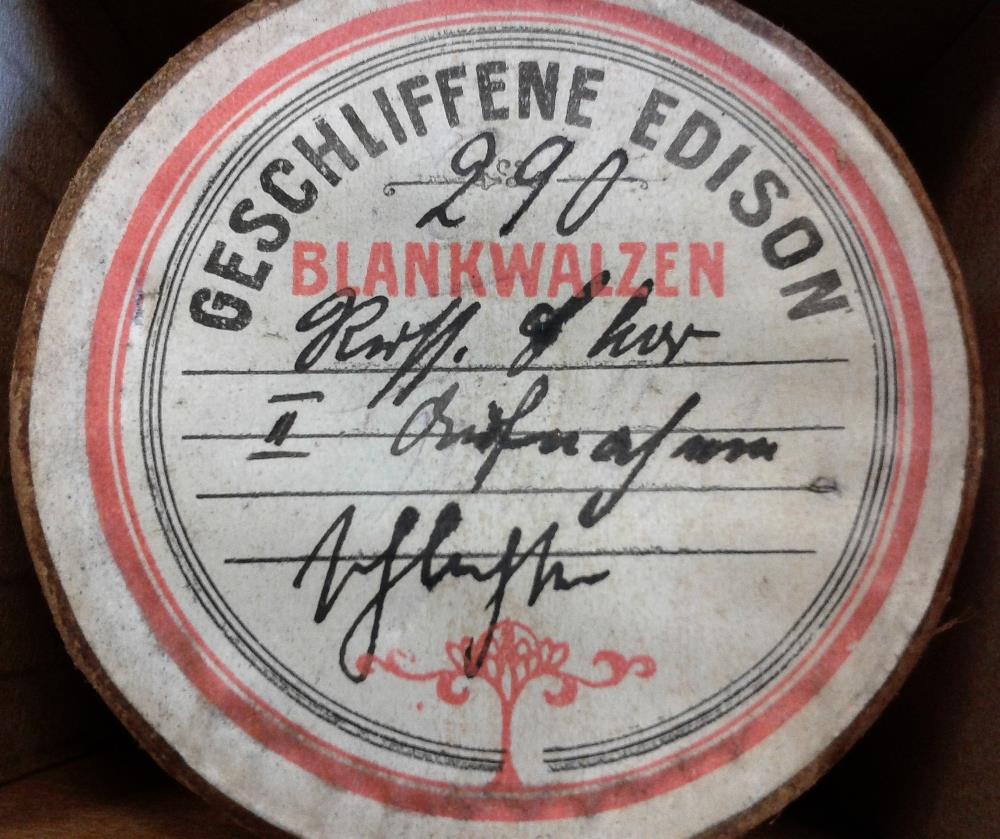 GESCHLIFFENE EDISON
290
BLANKWALZEN
Russ. Chor
II Aufnahme
schlechter